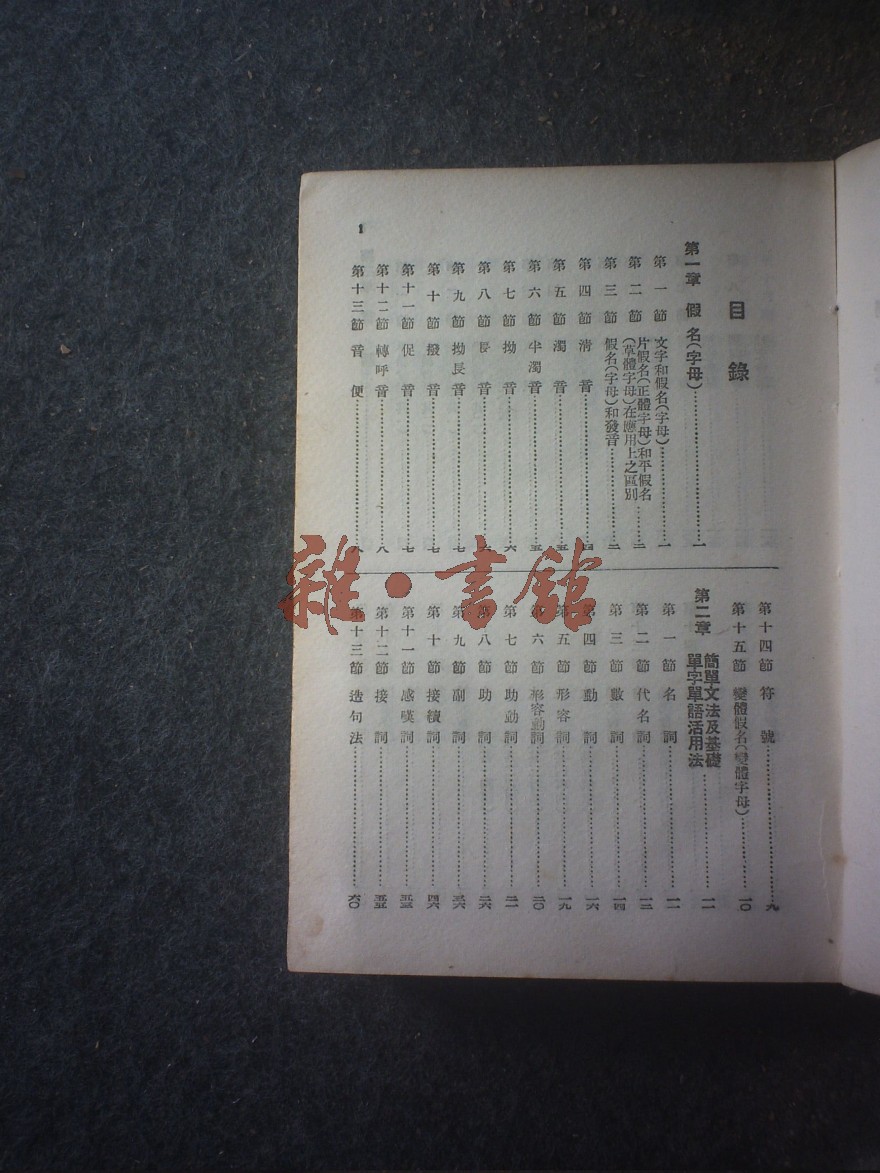 目錄
第一章 假名(字母)………一
第一節 文字和假名(字母)………一
第二節 片假名(正體字母)和平假名(草體字母)在應用上之區別………二
第三節 假名(字母)和發音………二
第四節 淸音………四
第五節 濁音………五
第六節 半濁音………五
第七節 拗音………六
第八節 長音………六
第九節 拗長音………七
第十節 撥音………七
第十一節 促音………七
第十二節 轉呼音………八
第十三節 音便………八
第十四節 符號………九
第十五節 變體假名(變體字母)………一〇
第二章 簡單文法及基礎單字單語活用法………一一
第一節 名詞………一一
第二節 代名詞………一二
第三節 數詞………一四
第四節 動詞………一六
第五節 形容詞………一九
第六節 形容動詞………二〇
第七節 助動詞………二一
第八節 助詞………二六
第九節 副詞………三六
第十節 接續詞………四六
第十一節 感嘆詞………五三
第十二節 接詞………五五
第十三節 造句法………六〇
1
雜·書館